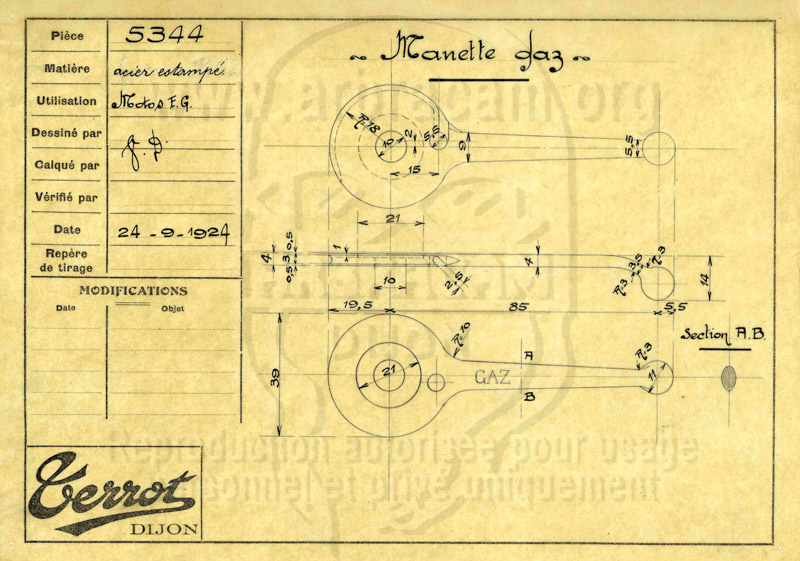 Pièce 5344
Matière acier estampé
Utilisation Motos F.G.
Dessiné par
Calqué par
Vérifié par
Date 24-9-1924
Repère de tirage
MODIFICATIONS
Date Objet
Terrot
DIJON
~ Manette gaz ~
R.18
10
2
5,5
9
5,5
15
21
4
0,5
3
0,5
1
10
2,5
4
3,5
R.3
R.3
14
19,5
85
5,5
39
21
R.10
GAZ
A
B
R.3
11
Section A.B.
www.
.org
Reproduction autorisée pour usage
personnel et privé uniquement